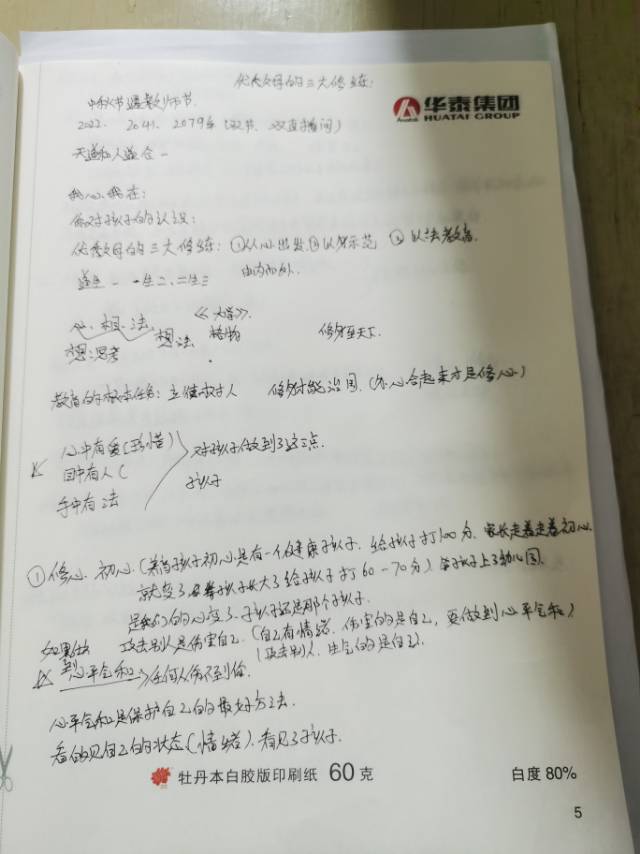 优秀父母的三大修炼:
华泰集团
HUATAI GROUP
中秋节遇教师节.
2022. 2041. 2079年 (双节. 双直播间)
天道和人道合一
我心、我在:
做对孩子的认识:
优秀父母的三大修炼: ①从心出发 ②以身示范 ③以法教育.
道生一 一生二、二生三 由内而外.
心、相、法. 想法 《大学》.
格物 修身至天下.
想:思考
教育的根本任务: 立德树人 修身才能治国.(身心合起来才是修心)
心中有爱(珍惜)
目中有人(
手中有法
对孩子做到3这三点.
孩子
①修心. 初心.(养育孩子初心是有一个健康孩子. 给孩子打100分. 家长走着走着初心.
就变了 孩子长大了给孩子打60-70分) 孩子上了幼儿园.
是我们的心变了.孩子还是那个孩子.
如果做 攻击别人是伤害自己.(自己有情绪. 伤害的是自己, 要做到心平气和)
(攻击别人. 生气的是自己).
到心平气和 任何人伤不到你.
心平气和是保护自己的最好方法.
看的见自己的状态(情绪).看见了孩子.
牡丹本白胶版印刷纸 60克
白度 80%
5